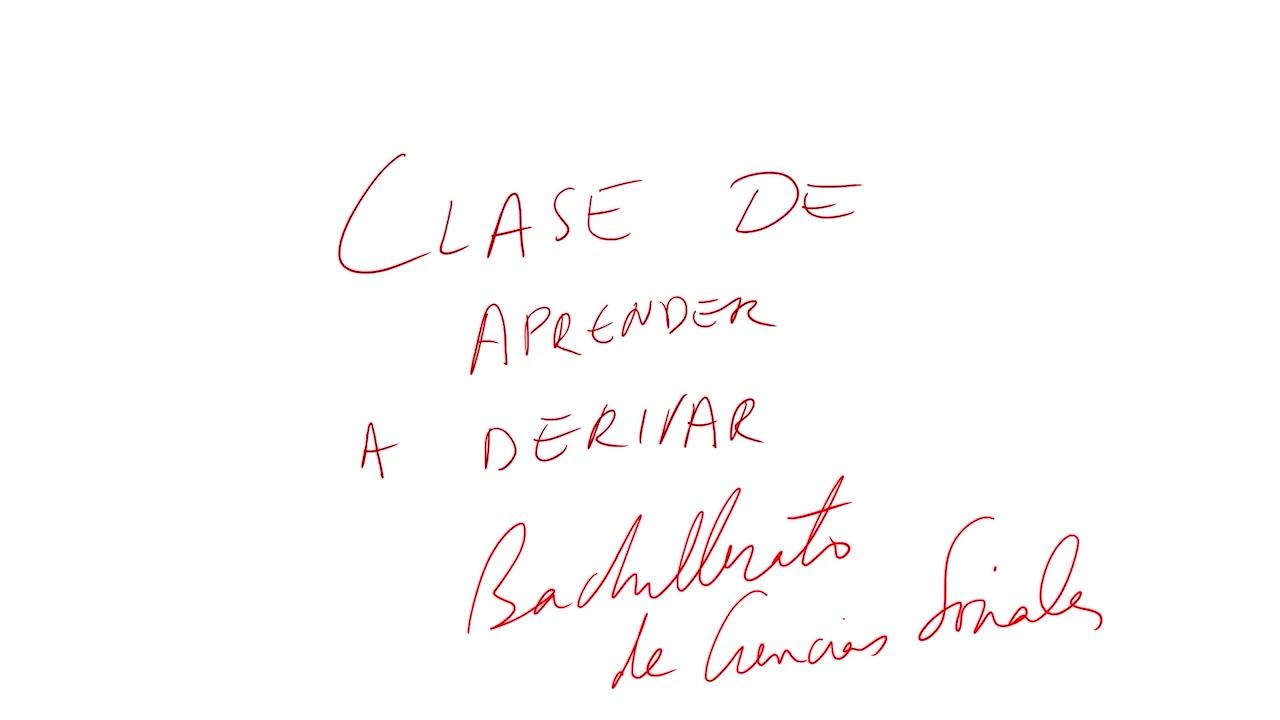 CLASE DE
APRENDER
A DERIVAR
Bachillerato
de Ciencias Sociales